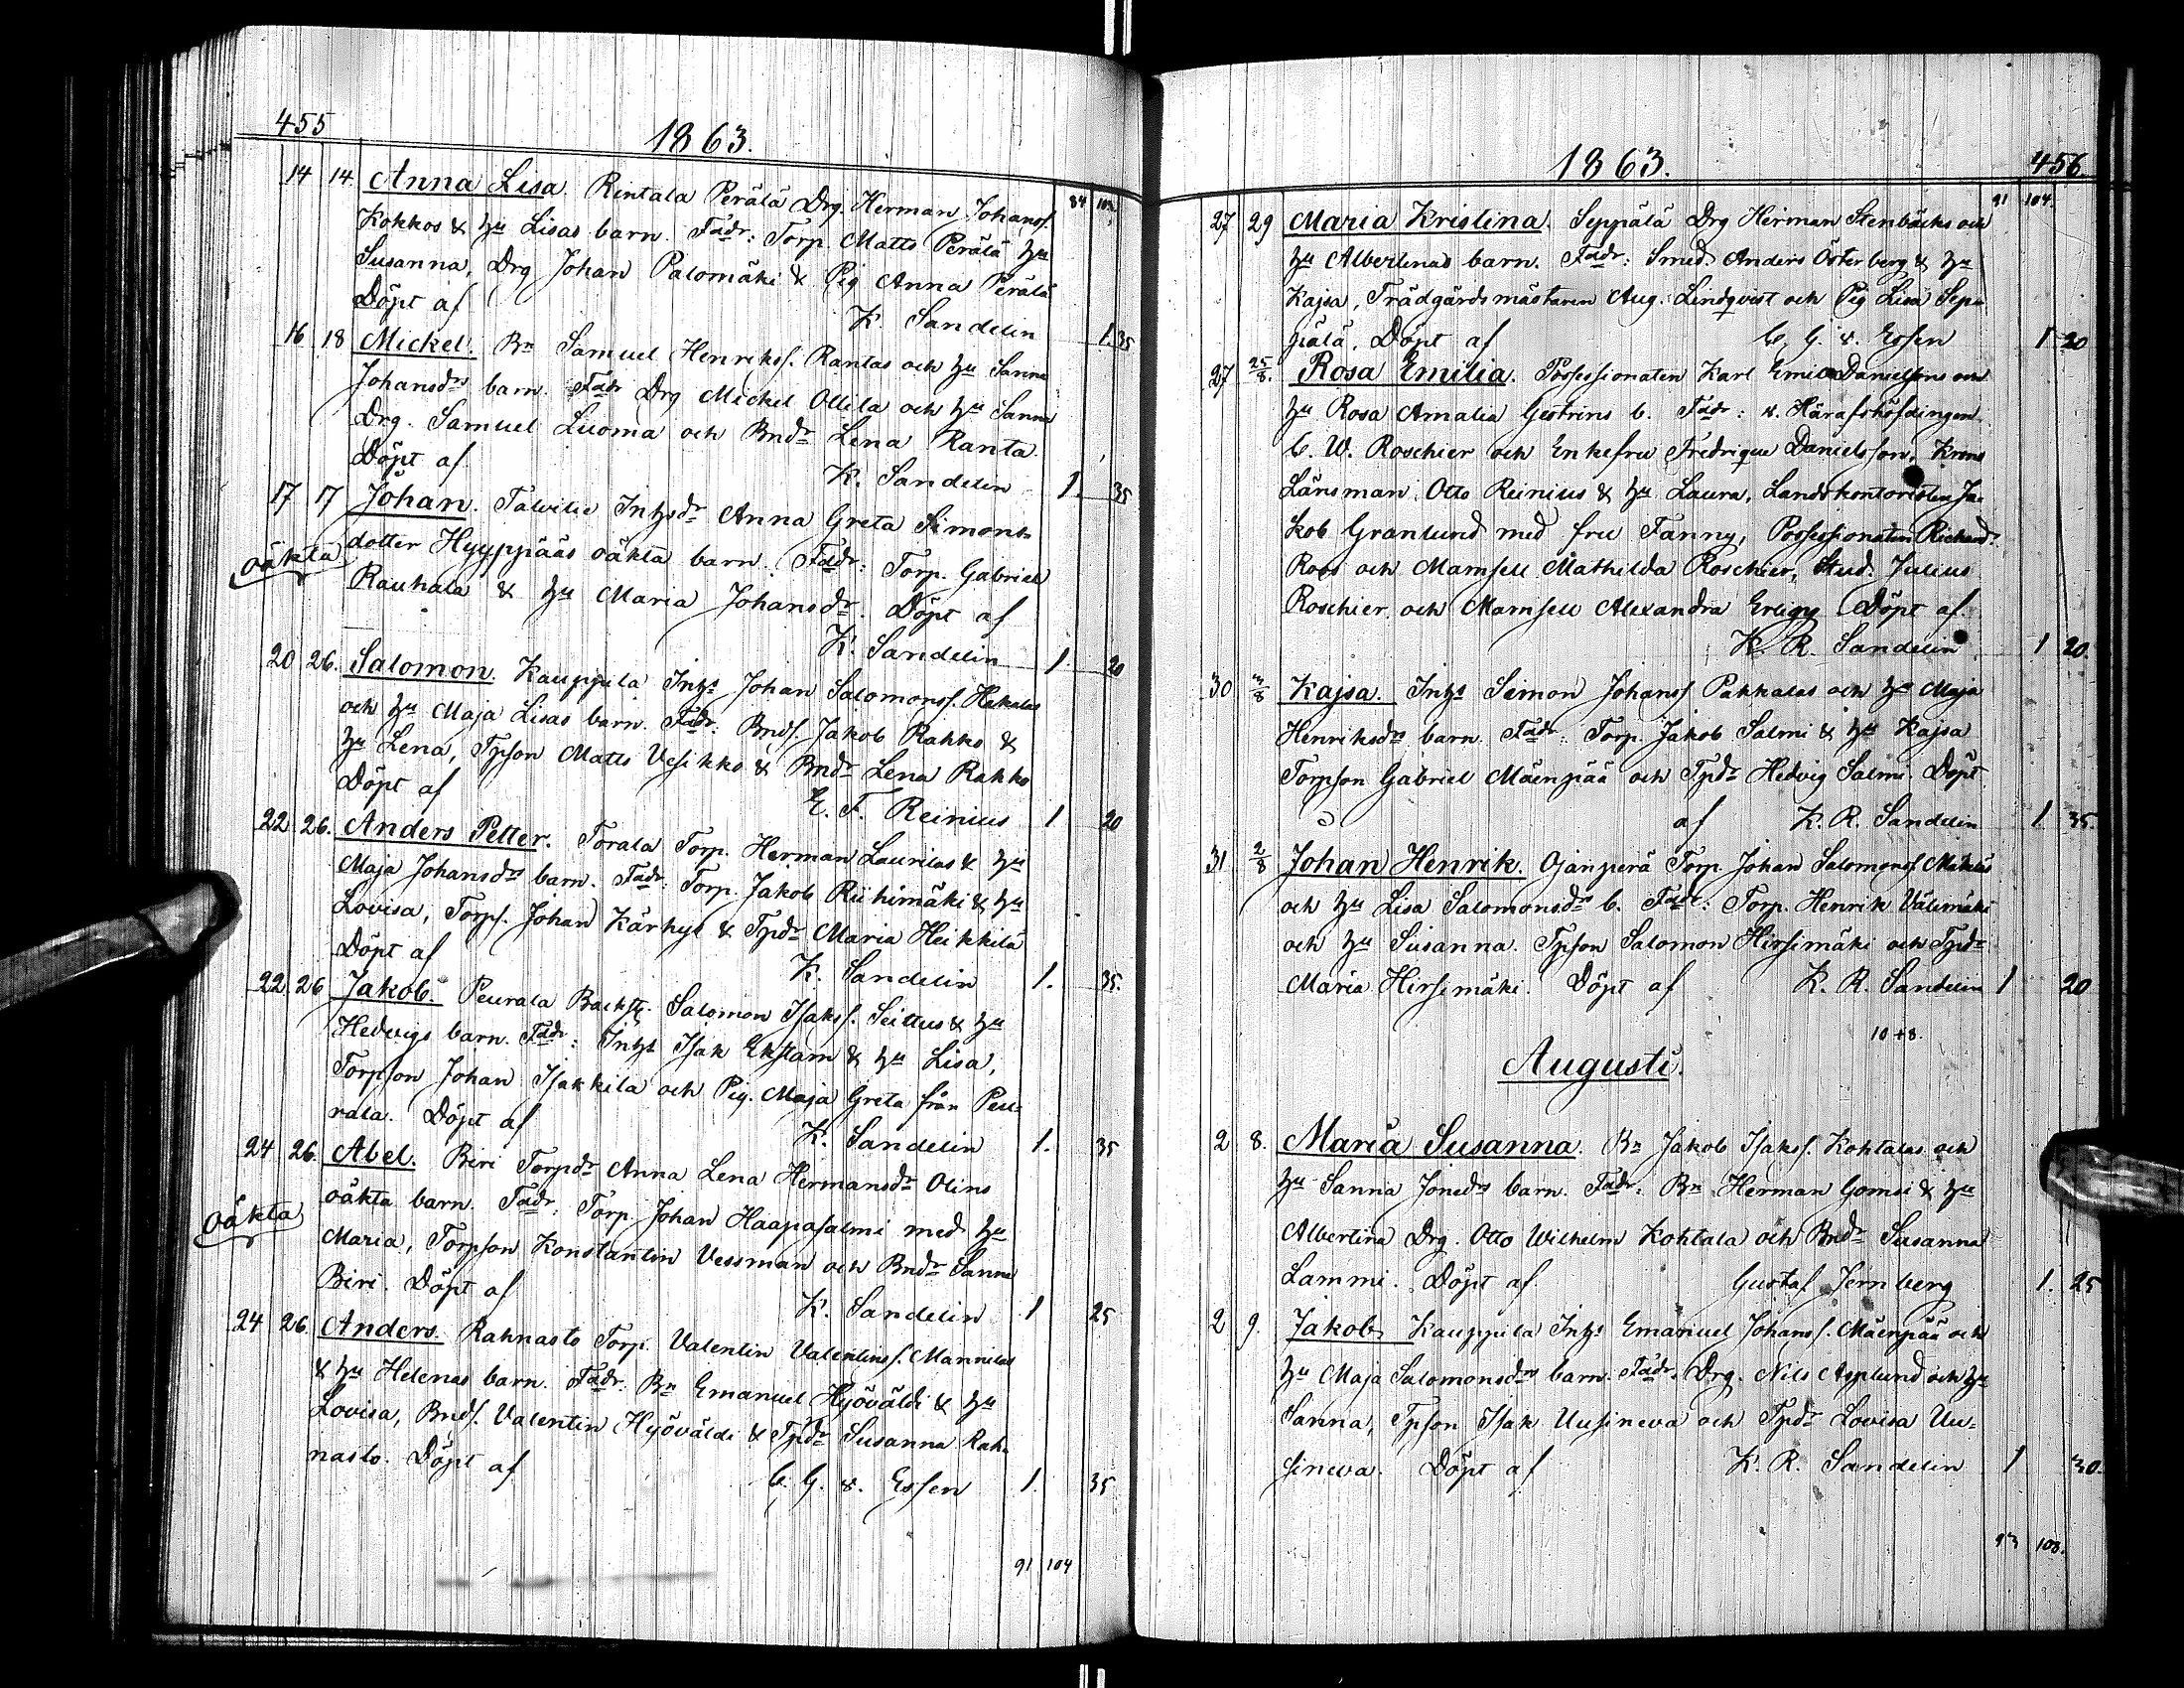 455
1863.
84 103.
14 14 Anna Lisa. Rintala Perälä Drg. Herman Johanss.
Kokkos & hu Lisas barn. Fadr: Torp. Matts Perälä hu
Susanna, Drg Johan Palomäki & Pig Anna Perälä
Döpt af K. Sandelin 1. 35
16 18 Mickel. Bn Samuel Henrikss. Rantas och hu Sanna
Johansdrs barn. Fadr Drg Mickel Ollila och hu Sanna
Drg. Samuel Luoma och Bndr Lena Ranta.
Döpt af K. Sandelin 1. 35
17 17 Johan. Talvitie Inhsdr Anna Greta Simons
oäkta dotter Hyyppääs oäkta barn. Fadr: Torp. Gabriel
Rauhala & hu Maria Johansdr. Döpt af
K. Sandelin 1. 20
20 26. Salomon. Kauppila Inhs Johan Salomonss. Hakalas
och hu Maja Lisas barn. Fadr: Bnds. Jakob Rahko &
hu Lena, Tpson Matts Vesikko & Bndr Lena Rahko
Döpt af E. F. Reinius 1 20
22 26. Anders Petter. Torala Torp. Herman Laurilas & hu
Maja Johansdrs barn. Fadr: Torp. Jakob Riihimäki & hu
Lovisa, Torps. Johan Kärhyl & Tpdr Maria Heikkilä
Döpt af K. Sandelin 1. 35.
22 26 Jakob. Peurala Backst. Salomon Isakss. Seittus & hu
Hedvigs barn. Fadr: Inhs Isak Ekstam & hu Lisa,
Torpson Johan Isakkila och Pig. Maja Greta från Peu=
rala. Döpt af K. Sandelin 1. 35
24 26. Abel. Biri Torpdr Anna Lena Hermansdr Olins
oäkta oäkta barn. Fadr: Torp. Johan Haapasalmi med hu
Maria, Torpson Konstantin Vessman och Bndr Sanna
Biri. Döpt af K. Sandelin 1 25
24 26. Anders. Rahnasto Torp. Valentin Valentinss. Mannilas
& hu Helenas barn. Fadr: Bn Emanuel Hyöväldi & hu
Lovisa, Bnds. Valentin Hyöväldi & Tpdr Susanna Rah=
nasto. Döpt af C. G. v. Essen 1. 35
91 104
1863. 456
91 104.
27 29 Maria Kristina. Seppälä Drg Herman Stenbäcks och
hu Albertinas barn. Fadr: Smed Anders Österberg & hu
Kajsa, Trädgårdsmästaren Aug. Lindqvist och Pig Lisa Sep=
pälä. Döpt af C. G. v. Essen 1 20
27 25/8. Rosa Emilia. Possessionaten Karl Emil Danielsons och
hu Rosa Amalia Gestrins b. Fadr: v. Häradshöfdingen
C. W. Roschier och Enkefru Fredrique Danielsson, Krono
Länsman Otto Reinius & hu Laura, Landskontoristen Ja=
kob Granlund med fru Fanny, Possessionaten Richard
Roos och Mamsell Mathilda Roschier, Stud. Julius
Roschier och Mamsell Alexandra Döpt af
K. R. Sandelin 1 20.
30 3/8 Kajsa. Inhs Simon Johanss Pakkalas och hu Maja
Henriksdrs barn. Fadr: Torp. Jakob Salmi & hu Kajsa
Torpson Gabriel Mäenpää och Tpdr Hedvig Salmi. Döpt
af K. R. Sandelin 1. 35.
31 2/8 Johan Henrik. Ojanperä Torp Johan Salomonss. Mäkiläs
och hu Lisa Salomonsdrs b. Fadr: Torp. Henrik Välimäki
och hu Susanna. Tpson Salomon Hirsimäki och Tpdr
Maria Hirsimäki. Döpt af K. R. Sandelin 1 20
10+8.
Augusti.
2 8. Maria Susanna. Bn Jakob Isakss. Kohtalas och
hu Sanna Jonsdrs barn. Fadr: Bn Herman Gomsi & hu
Albertina Drg. Otto Wilhelm Kohtala och Bndr Susanna
Lammi. Döpt af Gustaf Jernberg 1. 25
2 9. Jakob Kauppila Inhs Emanuel Johanss. Mäenpää och
hu Maja Salomonsdrs barn. Fadr. Drg. Nils Asplund och hu
Sanna, Tpson Isak Uusineva och Tpdr Lovisa Uu=
sineva. Döpt af K. R. Sandelin 1 30.
93 108.